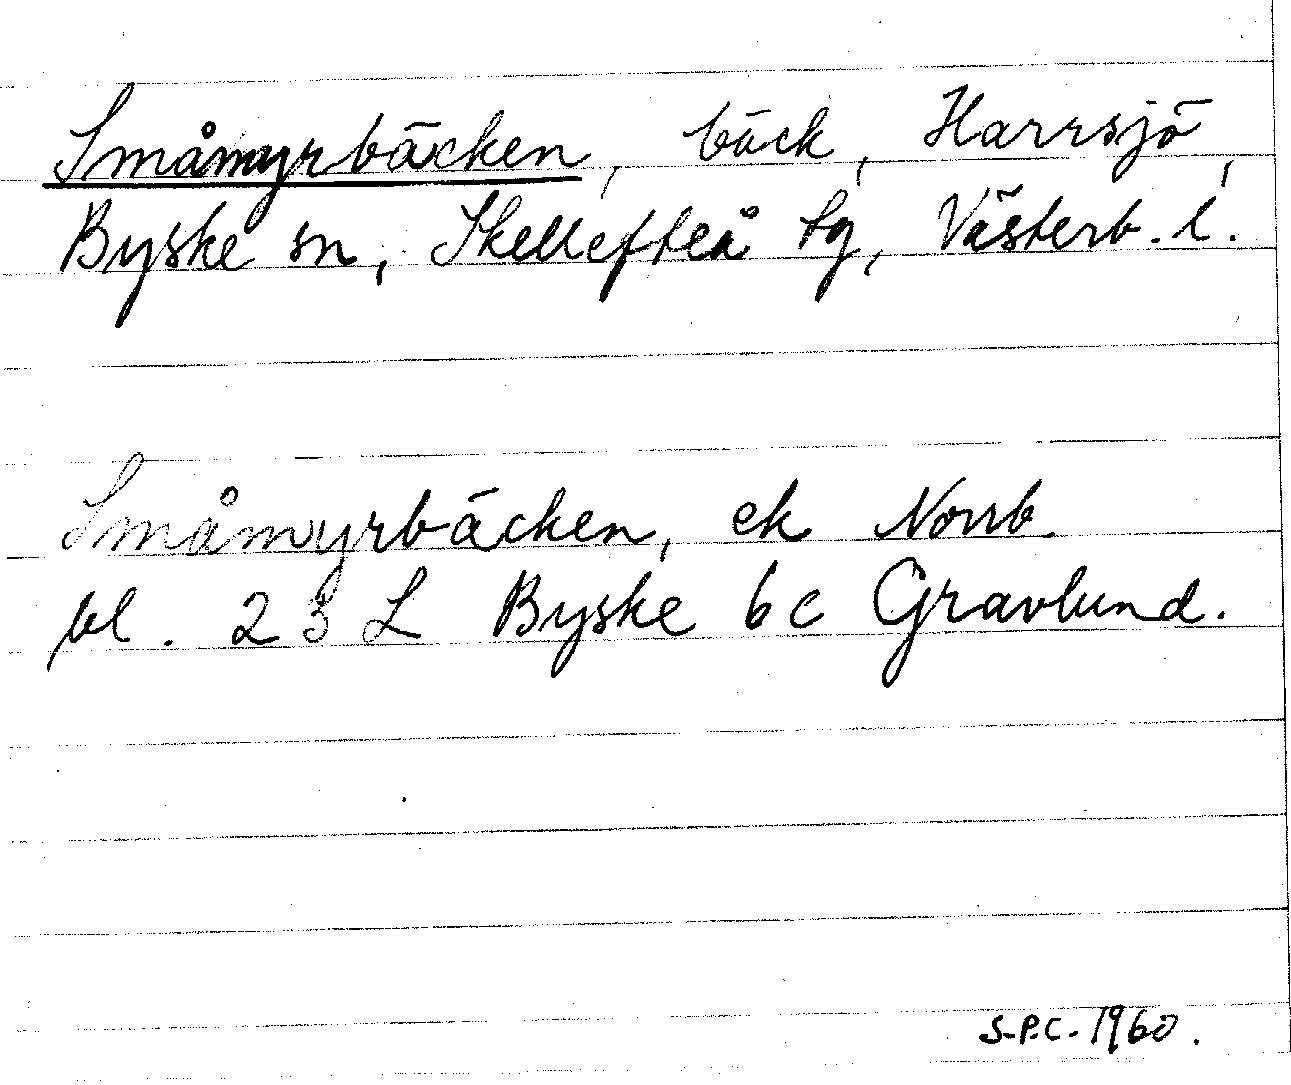 Småmyrbäcken, bäck, Harrsjö,
Byske sn, Skellefteå tg, Västerb. l.
Småmyrbäcken, ek Norrb.
bl. 23 L Byske 6c Gravlund.
S.P.C. 1960.